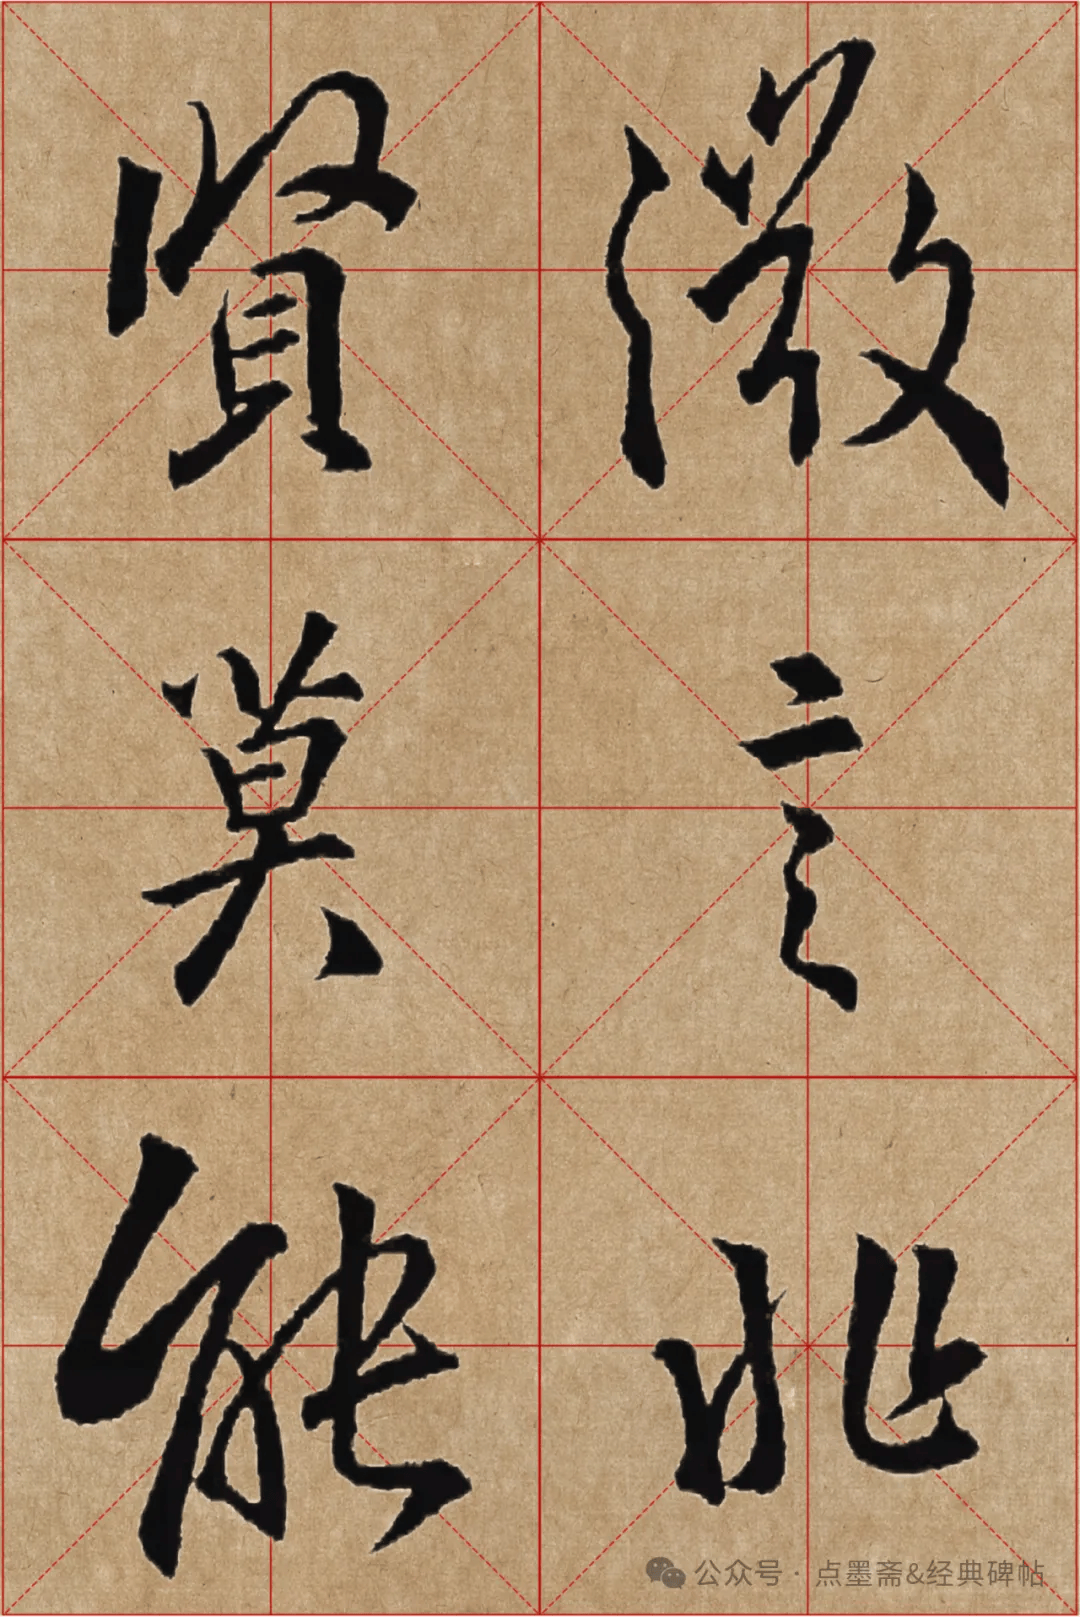 微言非
賢莫能
公众号 · 点墨斋&经典碑帖